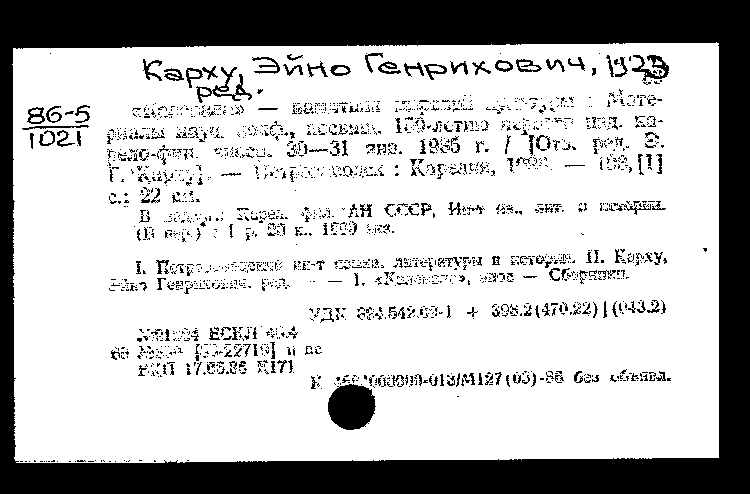 Карху, Эйно Генрихович, 1923
ред.
86-5
1021
«Калевала» — памятник мировой культуры : Мате-
риалы науч. конф., посвящ. 150-летию первого изд. ка-
рело-фин. эпоса. 30—31 янв. 1985 г. / [Отв. ред. Э.
Г. Карху]. — Петрозаводск : Карелия, 1986. — 198,[1]
с.; 22 см.
В надзаг.: Карел. фил. АН СССР, Ин-т яз., лит. и истории.
(В пер.) : 1 р. 20 к., 1000 экз.
I. Петрозаводский ин-т языка, литературы и истории. II. Карху,
Эйно Генрихович, ред. — 1. «Калевала», эпос — Сборники.
УДК 894.542.09-1 + 398.2(470.22)](043.2)
ЕСКЛ
[86-22719] п
ВКП 17.86.86 К171
К без объявл.